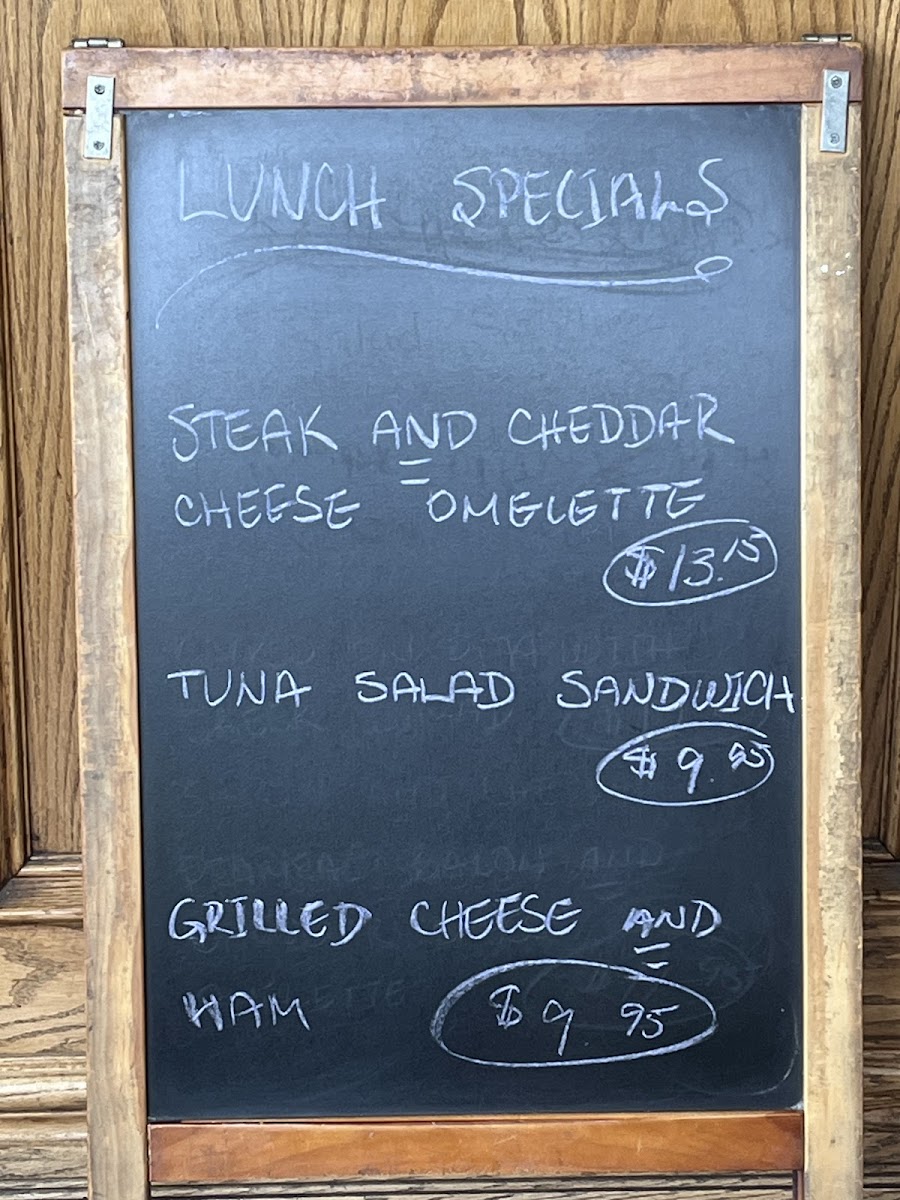 LUNCH SPECIALS
STEAK AND CHEDDAR
CHEESE OMELETTE
$13.15
TUNA SALAD SANDWICH
$9.95
GRILLED CHEESE AND
HAM $9 95